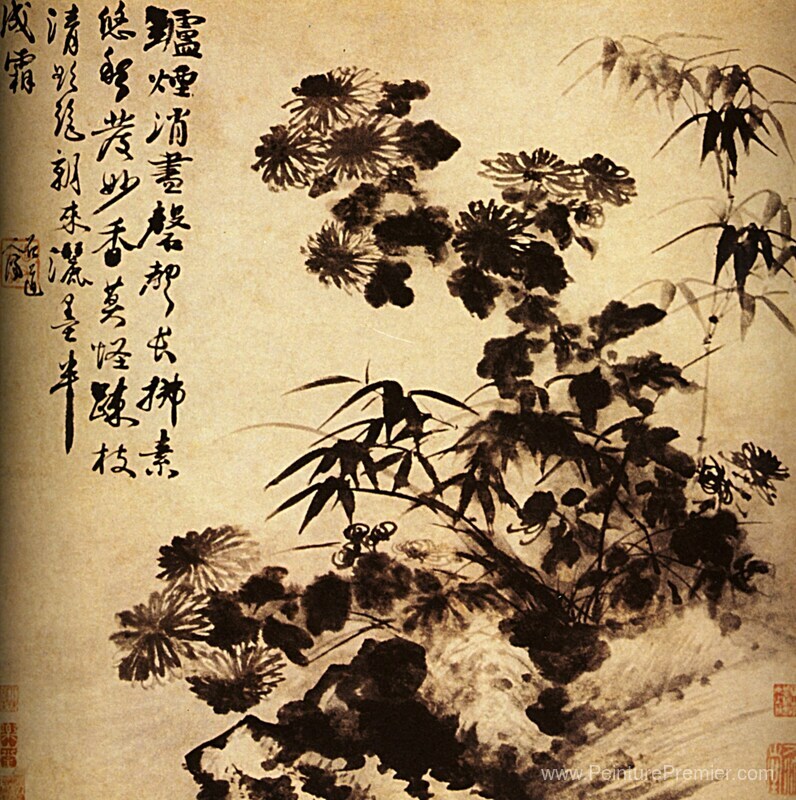 鑪煙消晝磬聲長拂素
發妙香莫怪疎枝
清朝來灑墨半
成霜
石道
www.PeinturePremier.com